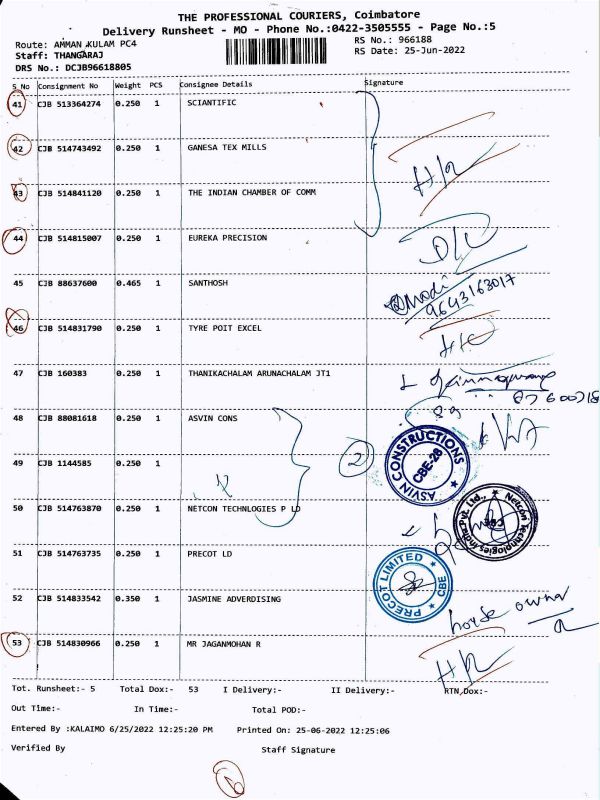 THE PROFESSIONAL COURIERS, Coimbatore
Delivery Runsheet - MO - Phone No.:0422-3505555 - Page No.:5
Route: AMMAN KULAM PC4
RS No.: 966188
Staff: THANGARAJ
RS Date: 25-Jun-2022
DRS No.: DCJB96618805
S No Consignment No Weight PCS Consignee Details Signature
41 CJB 513364274 0.250 1 SCIANTIFIC
42 CJB 514743492 0.250 1 GANESA TEX MILLS
43 CJB 514841120 0.250 1 THE INDIAN CHAMBER OF COMM
44 CJB 514815007 0.250 1 EUREKA PRECISION
D/L
45 CJB 88637600 0.465 1 SANTHOSH
9643163017
46 CJB 514831790 0.250 1 TYRE POIT EXCEL
47 CJB 160383 0.250 1 THANIKACHALAM ARUNACHALAM JT1
48 CJB 88081618 0.250 1 ASVIN CONS
ASVIN CONSTRUCTIONS
CBE-28
2
49 CJB 1144585 0.250 1
50 CJB 514763870 0.250 1 NETCON TECHNLOGIES P LD
Netcon Technologies India Pvt. Ltd.,
CBE
51 CJB 514763735 0.250 1 PRECOT LD
PRECOT LIMITED
CBE
52 CJB 514833542 0.350 1 JASMINE ADVERDISING
house owner
53 CJB 514830966 0.250 1 MR JAGANMOHAN R
Tot. Runsheet:- 5 Total Dox:- 53 I Delivery:- II Delivery:- RTN Dox:-
Out Time:- In Time:- Total POD:-
Entered By :KALAIMO 6/25/2022 12:25:20 PM Printed On: 25-06-2022 12:25:06
Verified By Staff Signature